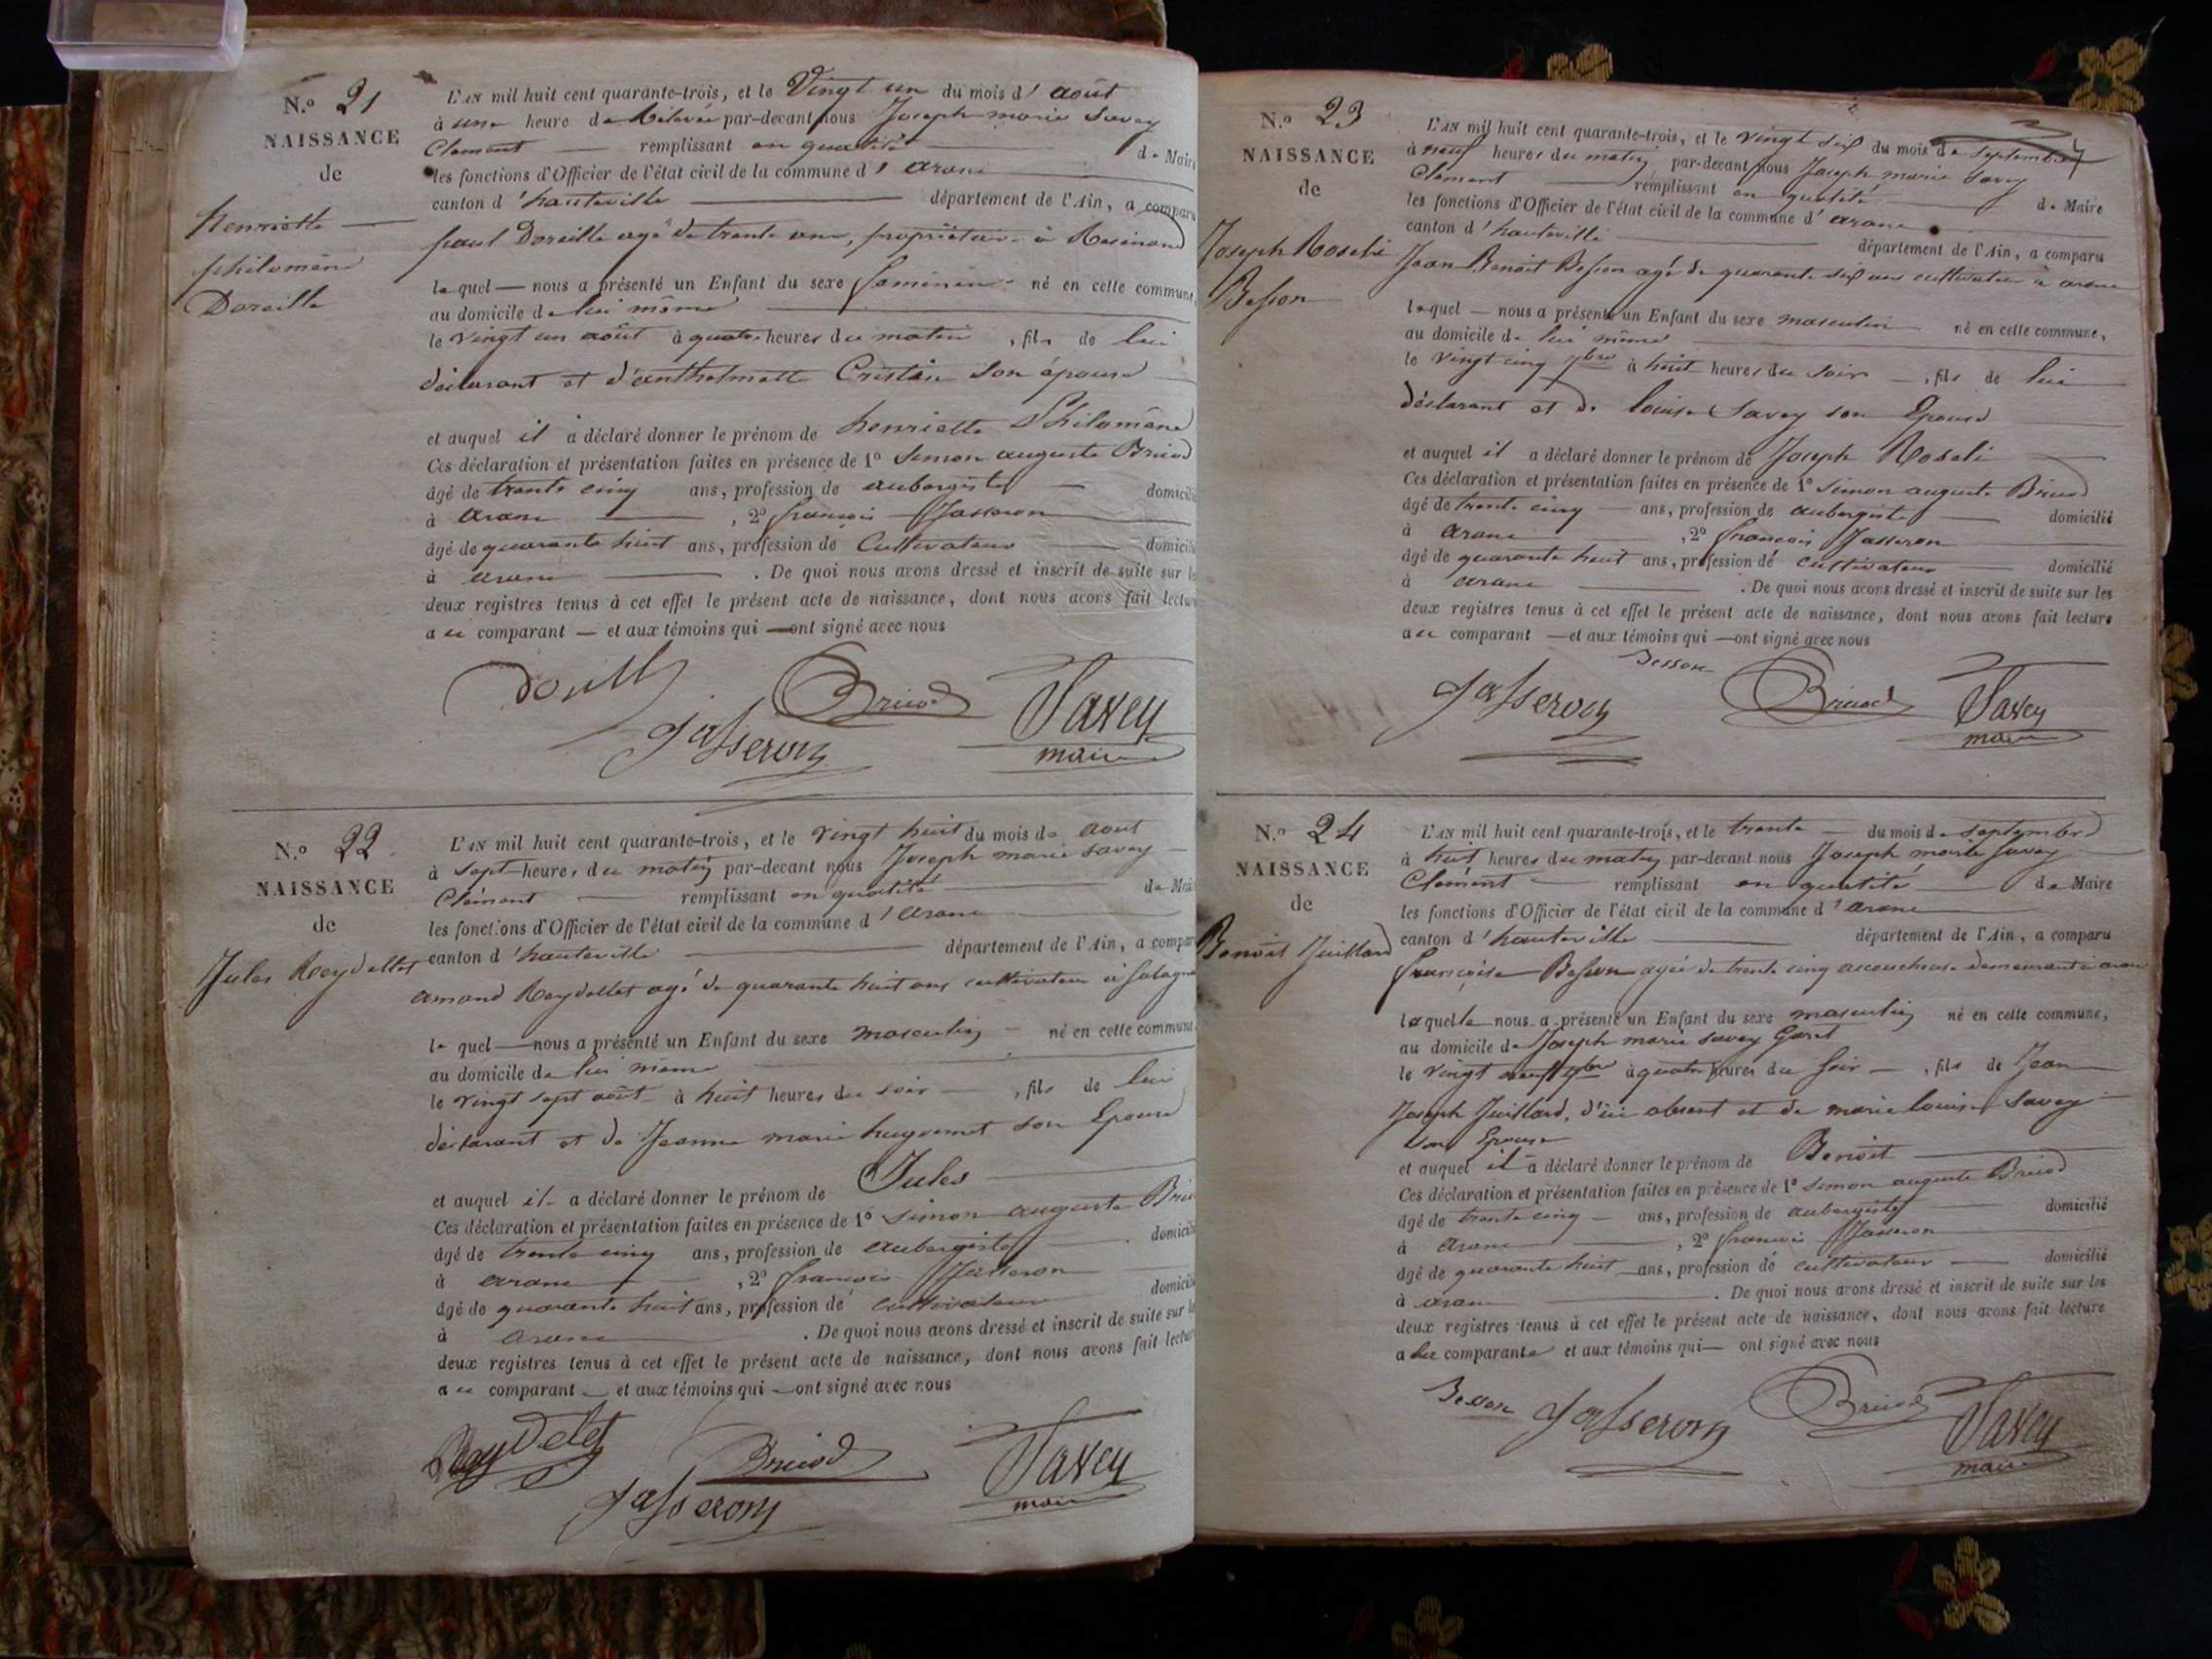 N.o 21
NAISSANCE
de
henriette
philomène
Doreille
L'AN mil huit cent quarante-trois, et le Vingt un du mois d' août
à une heure de Relevée par-devant nous Joseph marie Savey
Clement remplissant en qualité de Maire
les fonctions d'Officier de l'état civil de la commune d' arane
canton d' hauteville département de l'Ain, a comparu
paul Doreille agé de trente ans, propriétaire à
le quel nous a présenté un Enfant du sexe feminin né en cette commune
au domicile de lui même
le vingt un août à quatre heures du matin, fils de lui
déclarant et d'anthelmette Cristin son épouse
et auquel il a déclaré donner le prénom de henriette Philomène
Ces déclaration et présentation faites en présence de 1o Simon auguste Bricod
âgé de trente cinq ans, profession de aubergiste domicilié
à arane, 2o françois Jasseron
âgé de quarante huit ans, profession de Cultivateur domicilié
à arane. De quoi nous avons dressé et inscrit de suite sur les
deux registres tenus à cet effet le présent acte de naissance, dont nous avons fait lecture
au comparant et aux témoins qui ont signé avec nous
Bricod Savey
Jasseron maire
N.o 22
NAISSANCE
de
Jules Reydellet
L'AN mil huit cent quarante-trois, et le vingt huit du mois de aout
à sept heures du matin par-devant nous Joseph marie Savey
Clément remplissant en qualité de Maire
les fonctions d'Officier de l'état civil de la commune d' arane
canton d' hauteville département de l'Ain, a comparu
amand Reydellet agé de quarante huit ans cultivateur à
le quel nous a présenté un Enfant du sexe masculin né en cette commune
au domicile de lui même
le vingt sept août à huit heures du soir, fils de lui
déclarant et de Jeanne marie hugonnet son Epouse
et auquel il a déclaré donner le prénom de Jules
Ces déclaration et présentation faites en présence de 1o Simon auguste Bricod
âgé de trente cinq ans, profession de aubergiste domicilié
à arane, 2o françois Jasseron
âgé de quarante huit ans, profession de cultivateur domicilié
à arane. De quoi nous avons dressé et inscrit de suite sur les
deux registres tenus à cet effet le présent acte de naissance, dont nous avons fait lecture
au comparant et aux témoins qui ont signé avec nous
Reydelet Bricod Savey
Jasseron maire
N.o 23
NAISSANCE
de
Joseph Roseli
Besson
L'AN mil huit cent quarante-trois, et le vingt six du mois de septembre
à neuf heures du matin par-devant nous Joseph marie Savey
Clement remplissant en qualité de Maire
les fonctions d'Officier de l'état civil de la commune d' arane
canton d' hauteville département de l'Ain, a comparu
Jean Benoit Besson agé de quarante six ans cultivateur à arane
le quel nous a présenté un Enfant du sexe masculin né en cette commune,
au domicile de lui même
le vingt cinq 7bre à huit heures du soir, fils de lui
déclarant et de louise Savey son Epouse
et auquel il a déclaré donner le prénom de Joseph Roseli
Ces déclaration et présentation faites en présence de 1o Simon auguste Bricod
âgé de trente cinq ans, profession de aubergiste domicilié
à arane, 2o françois Jasseron
âgé de quarante huit ans, profession de cultivateur domicilié
à arane. De quoi nous avons dressé et inscrit de suite sur les
deux registres tenus à cet effet le présent acte de naissance, dont nous avons fait lecture
au comparant et aux témoins qui ont signé avec nous
Besson
Jasseron Bricod Savey
maire
N.o 24
NAISSANCE
de
Benoit Juillard
L'AN mil huit cent quarante-trois, et le trente du mois de septembre
à huit heures du matin par-devant nous Joseph marie Savey
Clément remplissant en qualité de Maire
les fonctions d'Officier de l'état civil de la commune d' arane
canton d' hauteville département de l'Ain, a comparu
françoise Besson agée de trente cinq acoucheuse demeurant à arane
laquelle nous a présenté un Enfant du sexe masculin né en cette commune,
au domicile de Joseph marie Savey
le vingt neuf 7bre à quatre heures du soir, fils de Jean
Joseph Juillard, d'ici absent et de marie louise Savey
son Epouse
et auquel il a déclaré donner le prénom de Benoit
Ces déclaration et présentation faites en présence de 1o Simon auguste Bricod
âgé de trente cinq ans, profession de aubergiste domicilié
à arane, 2o françois Jasseron
âgé de quarante huit ans, profession de cultivateur domicilié
à arane. De quoi nous avons dressé et inscrit de suite sur les
deux registres tenus à cet effet le présent acte de naissance, dont nous avons fait lecture
a la comparante et aux témoins qui ont signé avec nous
Besson Jasseron Bricod Savey
maire